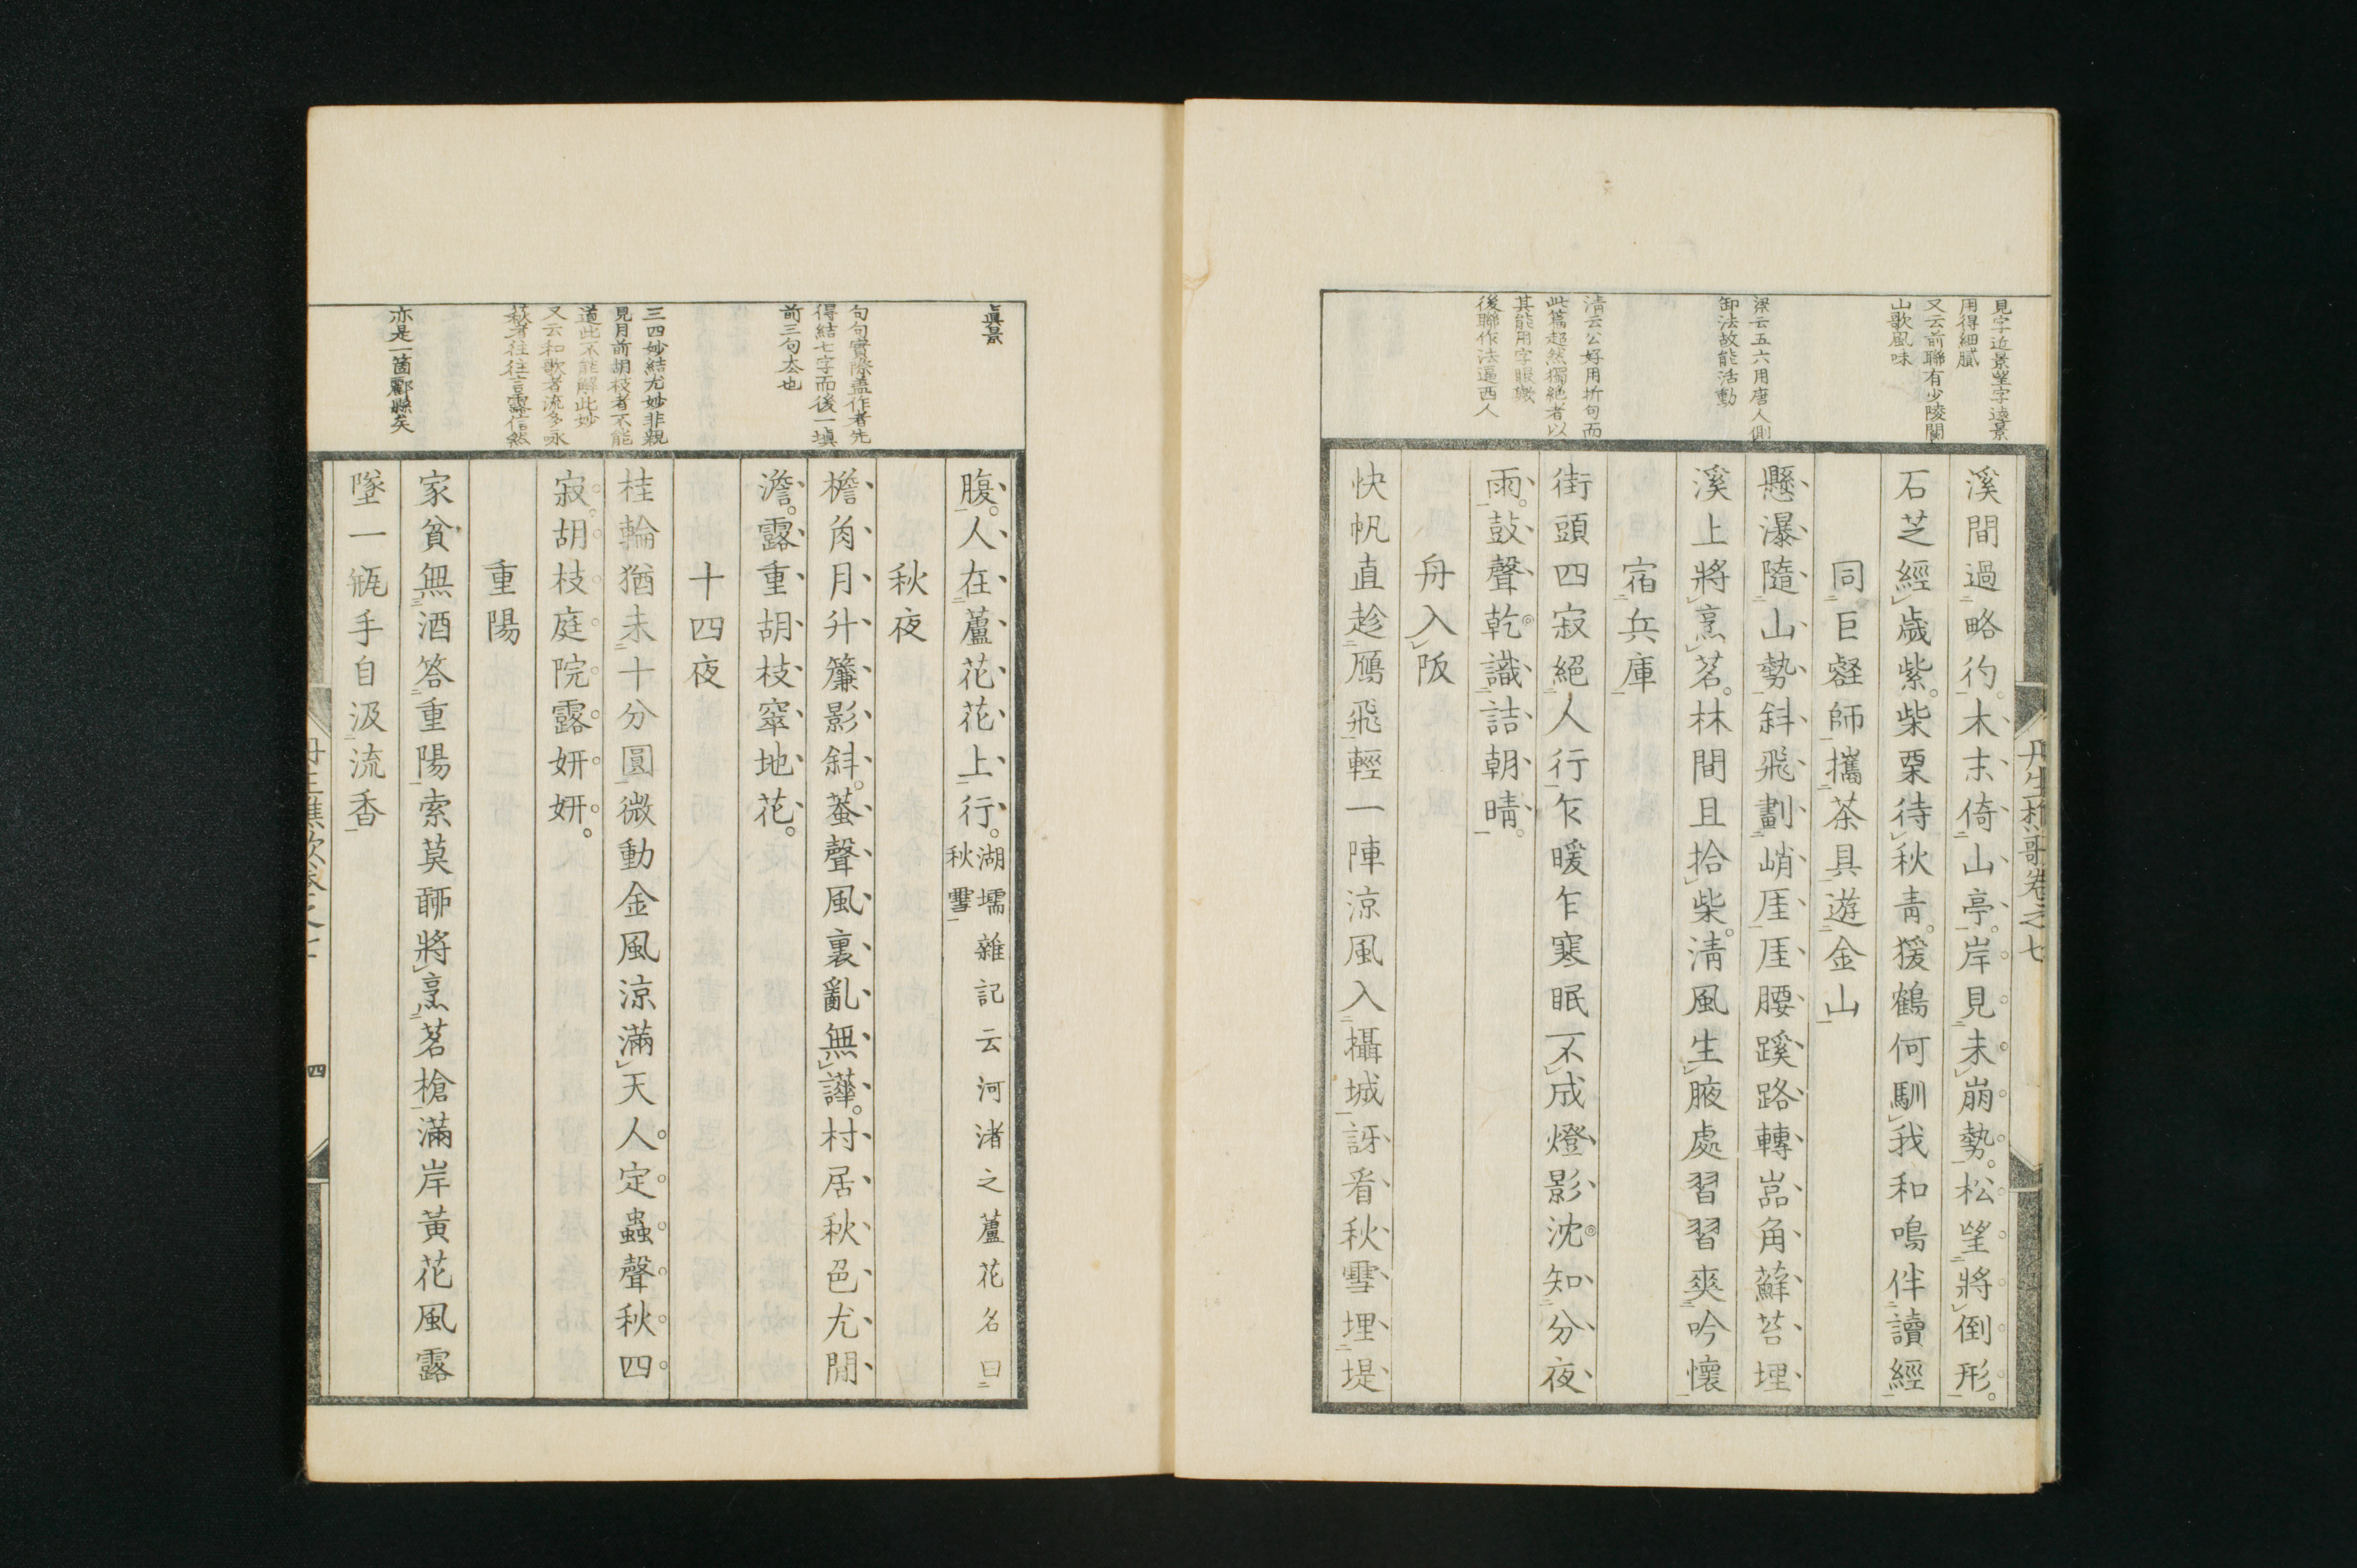 見字近景望字遠景
用得細膩
又云前聯有少陵關
山歌風味
梁云五六用唐人側
卸法故能活動
清云公好用折句而
此篇超然獨絶者以
其能用字眼癥
後聯作法逼西人
溪間過略彴木末倚山亭岸見未崩勢松望將倒形
石芝經歳紫柴栗待秋青猨鶴何馴我和鳴伴讀經
同巨嶅師攜茶具遊金山
懸瀑隨山勢斜飛劃峭厓厓腰蹊路轉嵓角蘚苔埋
溪上將烹茗林間且拾柴淸風生腋處習習爽吟懷
宿兵庫
街頭四寂絕人行乍暖乍寒眠不成燈影沈知分夜
雨鼓聲乾識詰朝晴
舟入阪
快帆直趁鴈飛輕一陣涼風入攝城訝看秋雪埋堤
丹生樵歌卷之七
眞景
句句實際蓋作者先
得結七字而後一塡
前三句夲也
三四妙結尤妙非親
見月前胡枝者不能
道此不能解此妙
又云和歌者流多咏
萩者往往言露信然
亦是一箇酈縣矣
腹人在蘆花花上行湖壖雜記云河渚之蘆花名曰
秋雪
秋夜
檐角月升簾影斜蛬聲風裏亂無譁村居秋色尤閒
澹露重胡枝窣地花
十四夜
桂輪猶未十分圓微動金風涼滿天人定蟲聲秋四
寂胡枝庭院露妍妍
重陽
家貧無酒答重陽索莫聊將烹茗槍滿岸黃花風露
墜一瓶手自汲流香
丹生樵歌卷之七
四